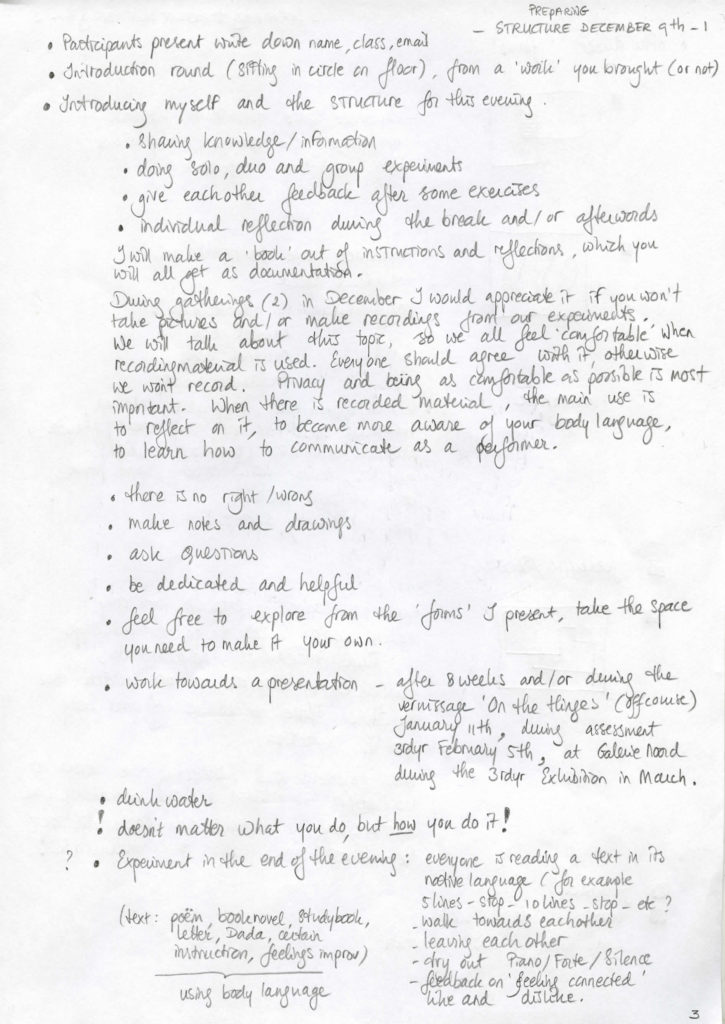 PREPARING
– STRUCTURE DECEMBER 9th – 1
• Participants present write down name, class, email
• Introduction round (sitting in circle on floor), from a 'work' you brought (or not)
• Introducing myself and the STRUCTURE for this evening.
• sharing knowledge/information
• doing solo, duo and group experiments
• give eachother feedback after some exercises
• individual reflection during the break and/or afterwords
I will make a 'book' out of instructions and reflections, which you
will all get as documentation.
During gatherings (2) in December I would appreciate it if you won't
take pictures and/or make recordings from our experiments.
We will talk about this topic, so we all feel 'comfortable' when
recordingmaterial is used. Everyone should agree with it, otherwise
we wont record. Privacy and being as comfortable as possible is most
important. When there is recorded material, the main use is
to reflect on it, to become more aware of your body language,
to learn how to communicate as a performer.
• there is no right/wrong
• make notes and drawings
• ask questions
• be dedicated and helpful
• feel free to explore from the 'forms' I present, take the space
you need to make it your own.
• work towards a presentation – after 8 weeks and/or during the
vernissage 'On the Hinges' (offcourse)
January 11th, during assessment
3rdyr February 5th, at Galerie Noord
during the 3rdyr Exhibition in March.
• drink water
! doesn't matter what you do, but how you do it!
? • Experiment in the end of the evening: everyone is reading a text in its
native language (for example
5 lines – stop – 10 lines – stop – etc ?
(text: poëm, booknovel, studybook,
letter, Dada, certain
instruction, feelings improv)
using body language
– walk towards eachother
– leaving each other
– try out Piano/Forte/Silence
– feedback on 'feeling connected'
like and dislike.
3